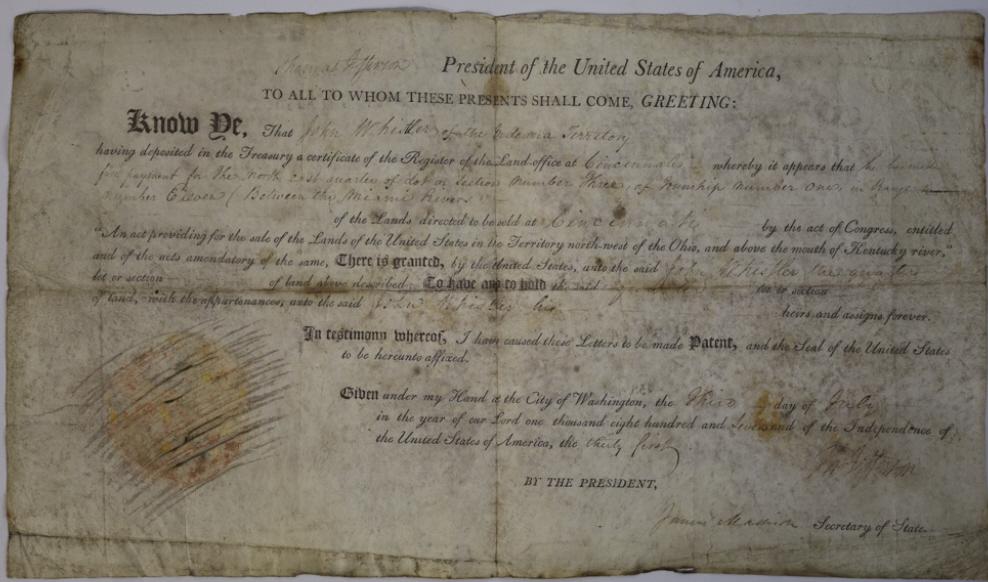 Thomas Jefferson President of the United States of America,
TO ALL TO WHOM THESE PRESENTS SHALL COME, GREETING:
Know Ye, That John Whistler of the Indiana Territory
having deposited in the Treasury a certificate of the Register of the Land-office at Cincinnati whereby it appears that he has made
full payment for the North East quarter of Lot or Section number Three, of Township number One, in Range
number Eleven (Between the Miami Rivers
of the Lands directed to be sold at Cincinnati by the act of Congress, entitled
"An act providing for the sale of the Lands of the United States in the Territory north-west of the Ohio, and above the mouth of Kentucky river,"
and of the acts amendatory of the same, There is granted, by the United States, unto the said John Whistler the quarter
lot or section of land above described: To have and to hold the said quarter lot or section
of land, with the appurtenances, unto the said John Whistler his heirs and assigns forever.
In testimony whereof, I have caused these Letters to be made Patent, and the Seal of the United States
to be hereunto affixed.
Given under my Hand at the City of Washington, the Third day of July
in the year of our Lord one thousand eight hundred and seven and of the Independence of
the United States of America, the thirty first
Th: Jefferson
BY THE PRESIDENT,
James Madison Secretary of State.